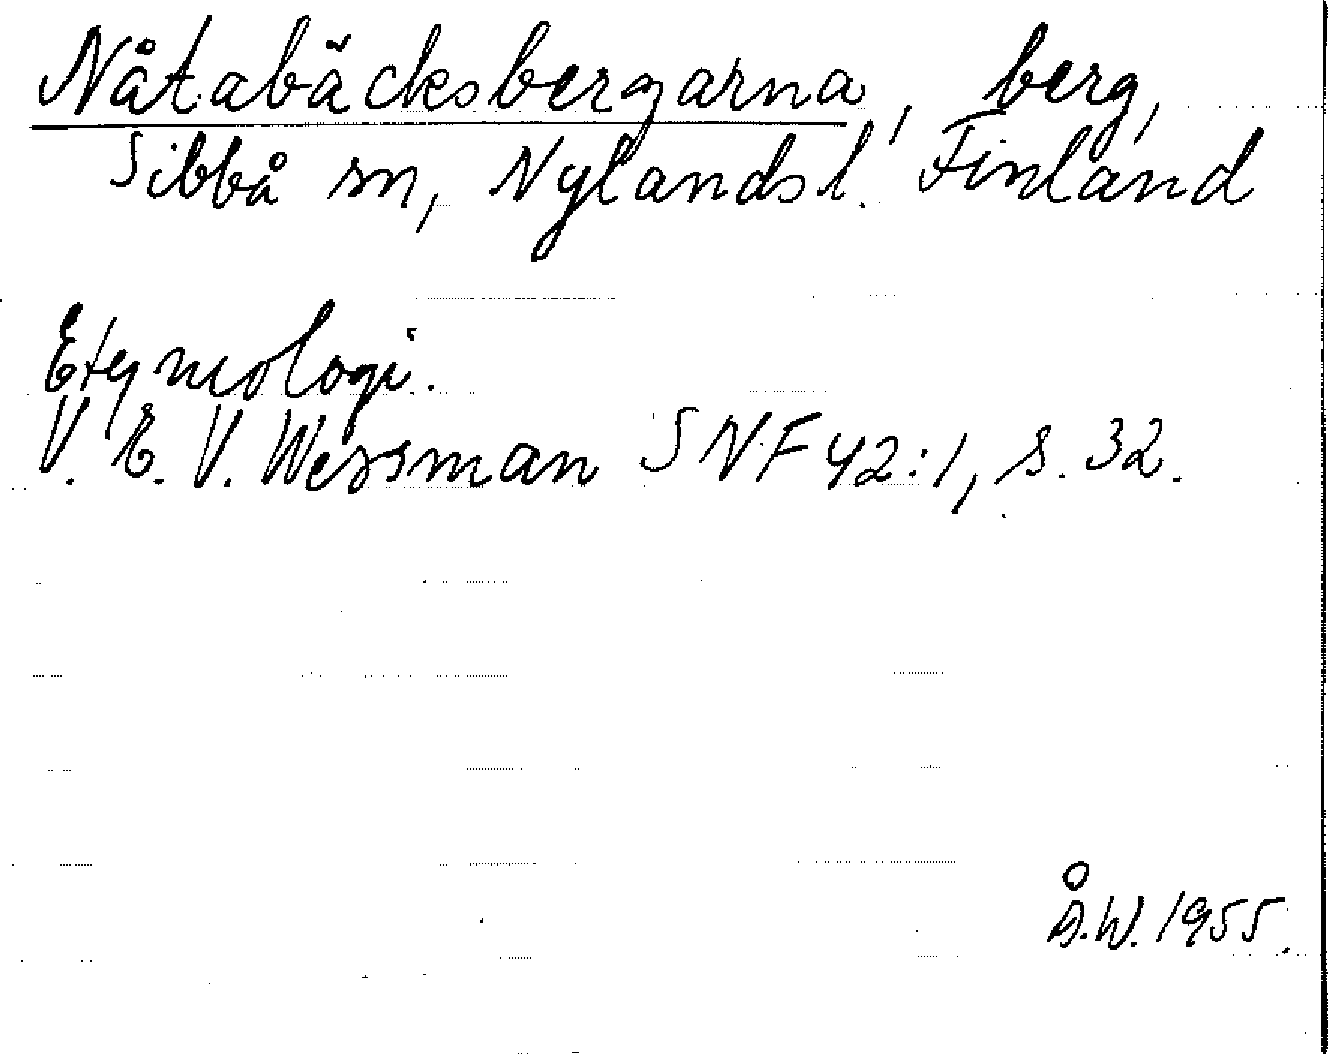 Nåtabäcksbergarna, berg,
Sibbå sn, Nylands l. Finland
Etymologi.
V. E. V. Wessman SNF 42:1, s. 32.
Å.W. 1955.